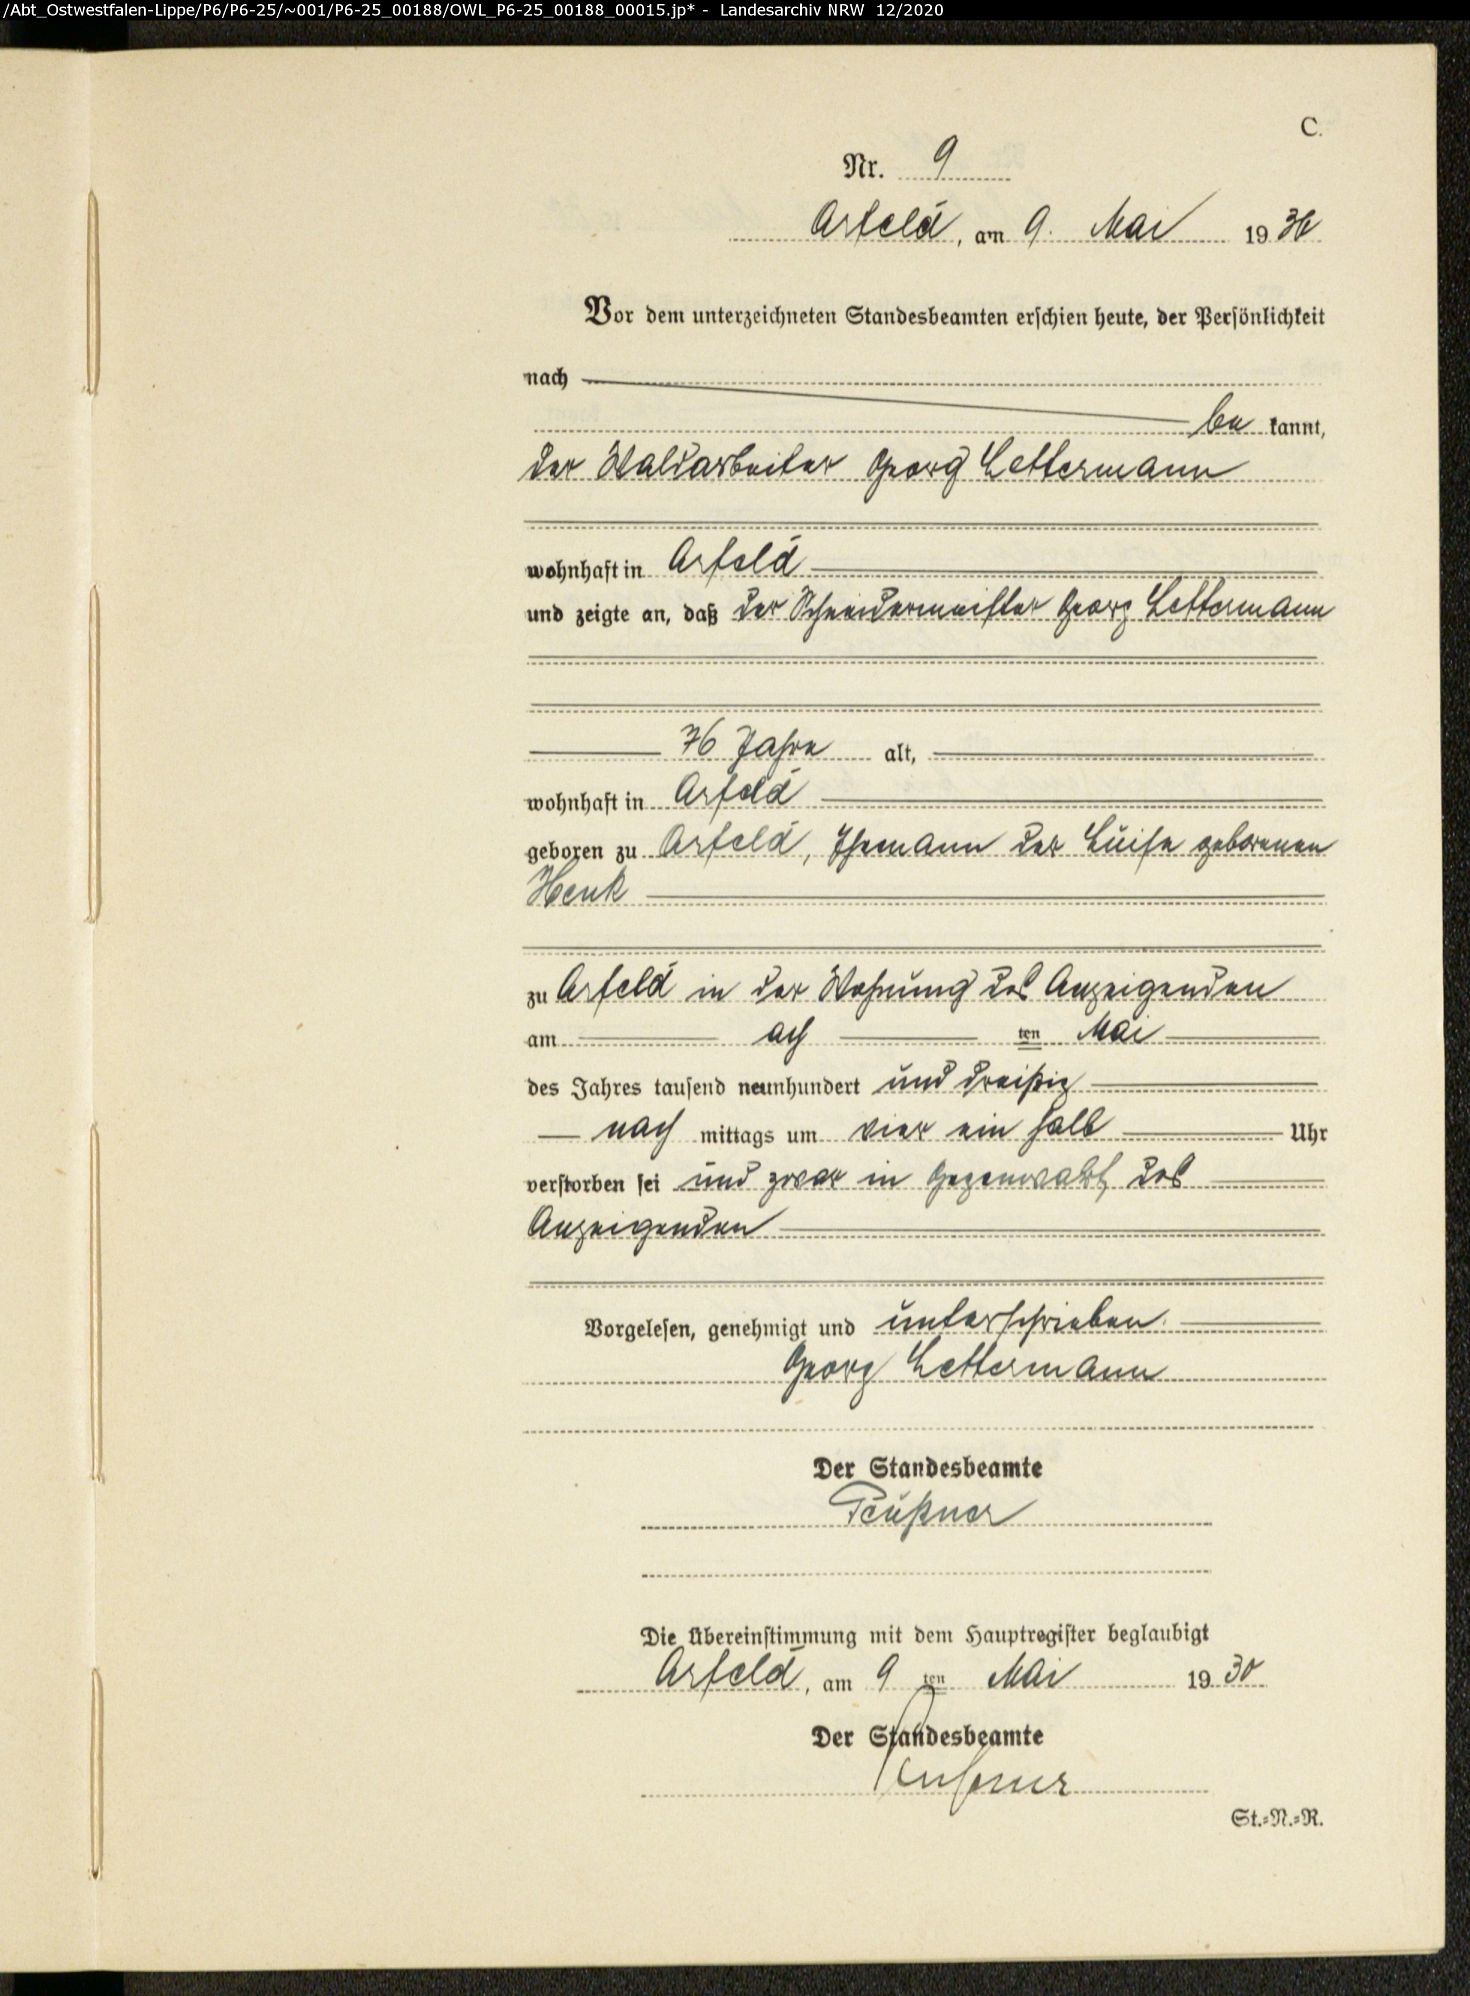 /Abt_Ostwestfalen-Lippe/P6/P6-25/~001/P6-25_00188/OWL_P6-25_00188_00015.jp* - Landesarchiv NRW 12/2020
C.
Nr. 9
Arfeld, am 9. Mai 1930
Vor dem unterzeichneten Standesbeamten erschien heute, der Persönlichkeit
nach
be kannt,
der Waldarbeiter Georg Lettermann
wohnhaft in Arfeld
und zeigte an, daß der Schneidermeister Georg Lettermann
76 Jahre alt,
wohnhaft in Arfeld
geboren zu Arfeld, Ehemann der Luise geborenen
Henk
zu Arfeld in der Wohnung des Anzeigenden
am ach ten Mai
des Jahres tausend neunhundert und dreißig
nach mittags um vier ein halb Uhr
verstorben sei und zwar in Gegenwart des
Anzeigenden
Vorgelesen, genehmigt und unterschrieben.
Georg Lettermann
Der Standesbeamte
Die Übereinstimmung mit dem Hauptregister beglaubigt
Arfeld, am 9 ten Mai 1930
Der Standesbeamte
St.=N.=R.